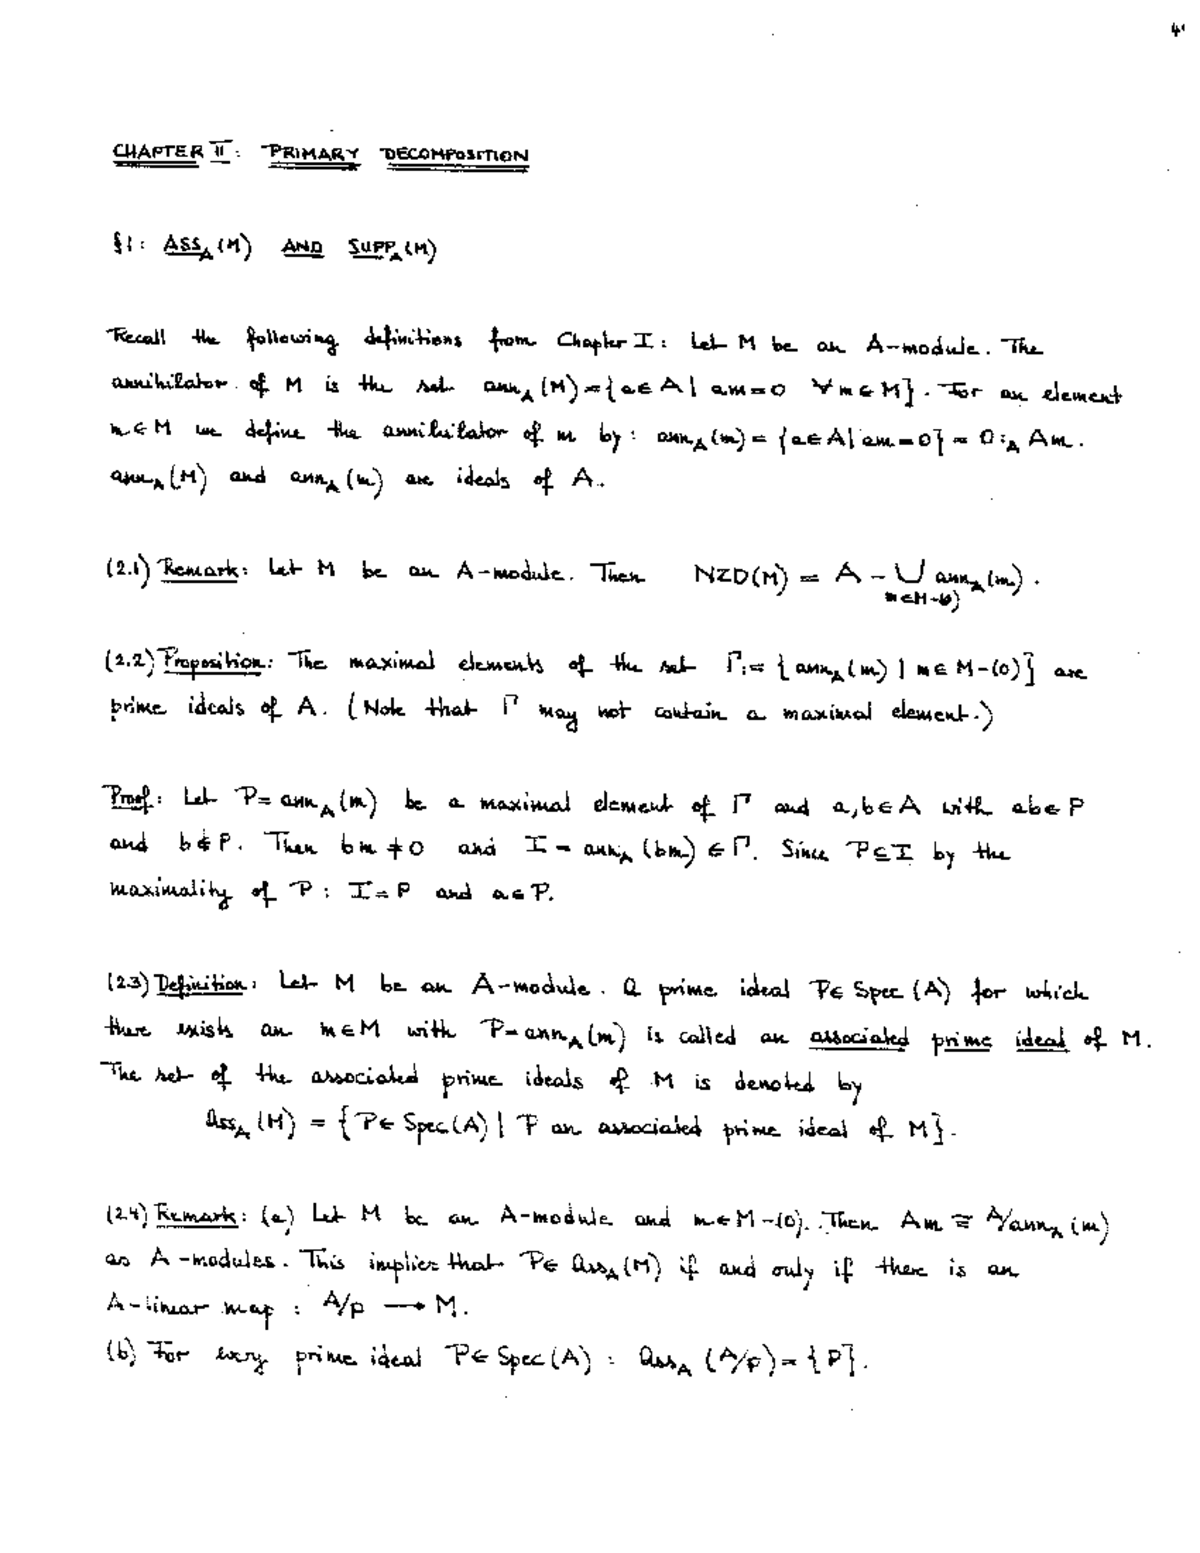 CHAPTER II: PRIMARY DECOMPOSITION
§1: ASS_A(M) AND SUPP_A(M)
Recall the following definitions from Chapter I: Let M be an A-module. The
annihilator of M is the set ann_A(M)={a∈A| am=0 ∀m∈M}. For an element
m∈M we define the annihilator of m by: ann_A(m)={a∈A|am=0}=0:_A Am.
ann_A(M) and ann_A(m) are ideals of A.
(2.1) Remark: Let M be an A-module. Then NZD(M) = A - ∪ ann_A(m).
m∈M-(0)
(2.2) Proposition: The maximal elements of the set Γ:= {ann_A(m) | m∈M-(0)} are
prime ideals of A. (Note that Γ may not contain a maximal element.)
Proof: Let P=ann_A(m) be a maximal element of Γ and a,b∈A with ab∈P
and b∉P. Then bm≠0 and I=ann_A(bm)∈Γ. Since P⊆I by the
maximality of P: I=P and a∈P.
(2.3) Definition: Let M be an A-module. A prime ideal P∈Spec(A) for which
there exists an m∈M with P=ann_A(m) is called an associated prime ideal of M.
The set of the associated prime ideals of M is denoted by
Ass_A(M) = {P∈Spec(A)| P an associated prime ideal of M}.
(2.4) Remark: (a) Let M be an A-module and m∈M-(0). Then Am ≅ A/ann_A(m)
as A-modules. This implies that P∈Ass_A(M) if and only if there is an
A-linear map: A/P → M.
(b) For every prime ideal P∈Spec(A): Ass_A(A/P)={P}.